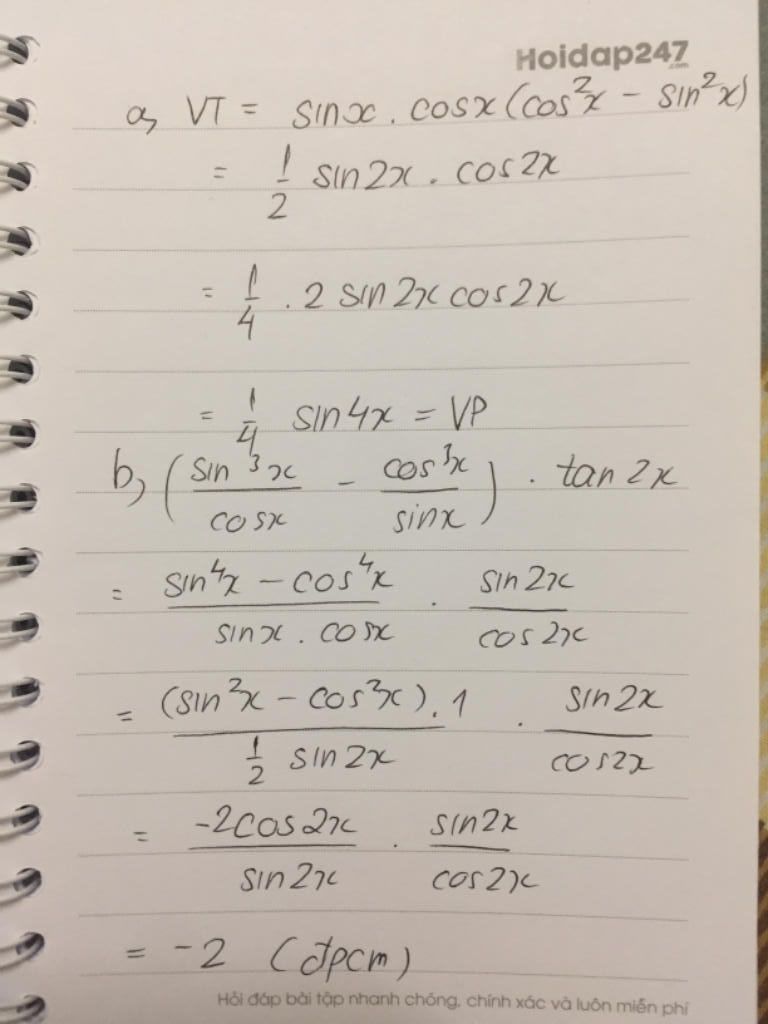 Hoidap247
.com
a, VT = sinx . cosx (cos²x - sin²x)
= 1/2 sin2x . cos2x
= 1/4 . 2 sin2x cos2x
= 1/4 sin4x = VP
b, (sin³x/cosx - cos³x/sinx) . tan2x
= (sin⁴x - cos⁴x)/(sinx . cosx) . sin2x/cos2x
= (sin²x - cos²x).1/(1/2 sin2x) . sin2x/cos2x
= -2cos2x/sin2x . sin2x/cos2x
= -2 (đpcm)
Hỏi đáp bài tập nhanh chóng, chính xác và luôn miễn phí